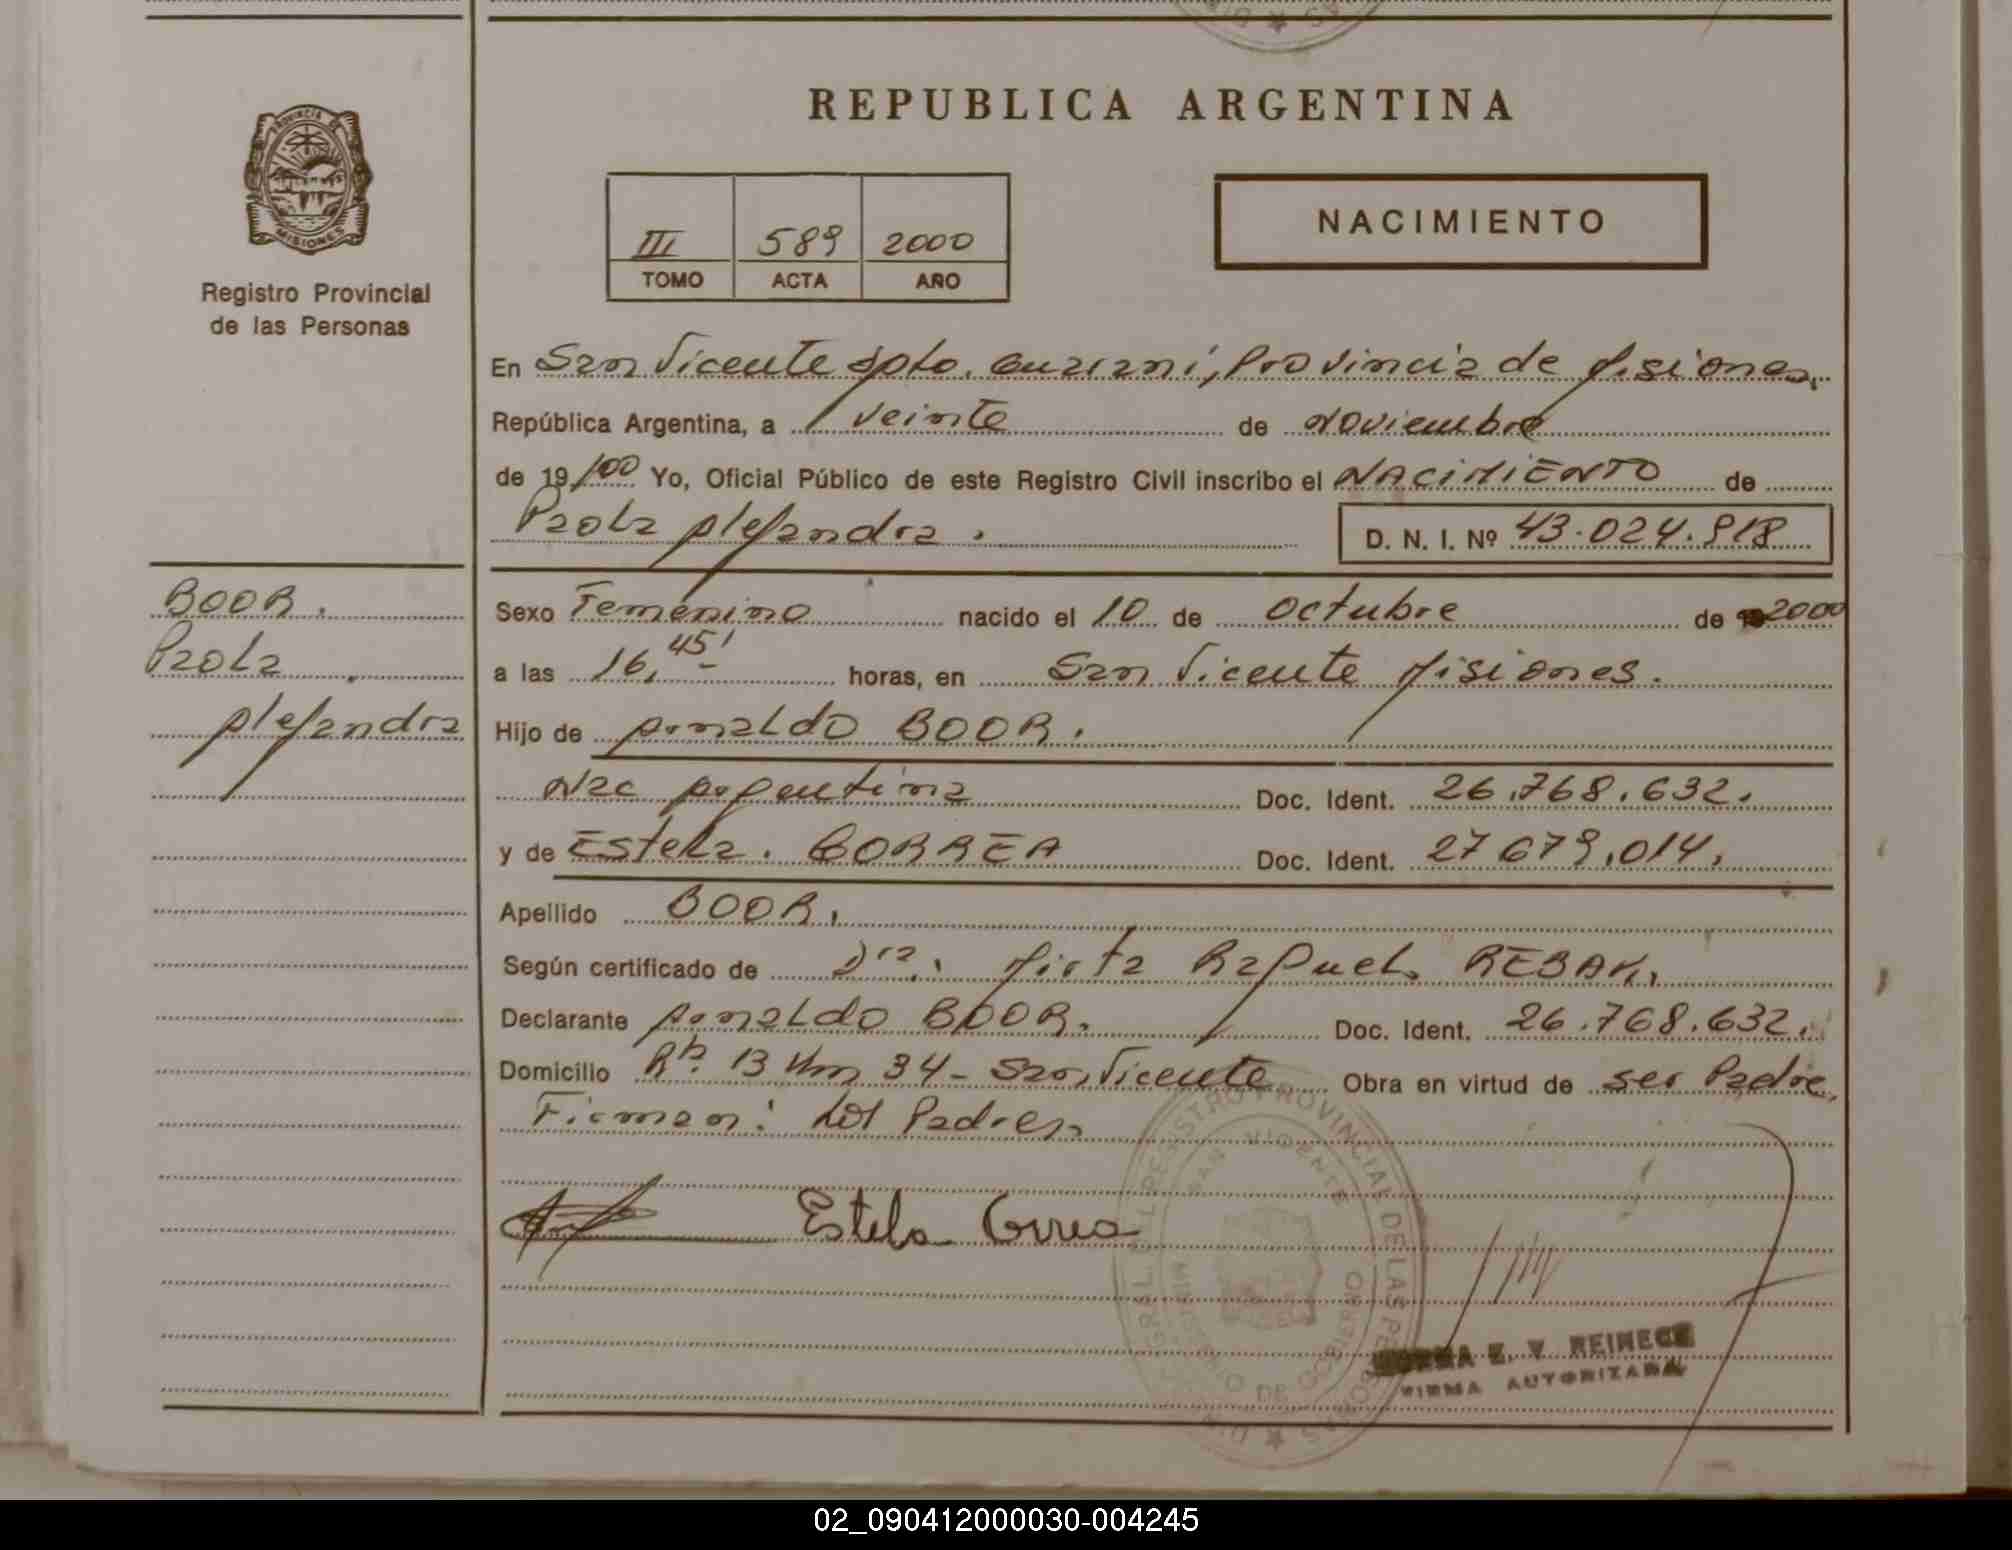 REPUBLICA ARGENTINA
PROVINCIA DE
MISIONES
Registro Provincial
de las Personas
III 589 2000
TOMO ACTA AÑO
NACIMIENTO
En San Vicente Dpto. Guaraní, Provincia de Misiones,
República Argentina, a veinte de Noviembre
de 19/00 Yo, Oficial Público de este Registro Civil inscribo el NACIMIENTO de
Paola Alejandra. D. N. I. Nº 43.024.918
BOOR.
Paola
Alejandra
Sexo Femenino nacido el 10 de Octubre de 2000
a las 16,45' horas, en San Vicente Misiones.
Hijo de Arnaldo BOOR.
Nac Argentina Doc. Ident. 26.768.632.
y de Estela. CORREA Doc. Ident. 27679.014.
Apellido BOOR.
Según certificado de Dra. Mirta Raquel REBAK.
Declarante Arnaldo BOOR. Doc. Ident. 26.768.632.
Domicilio 13 Km 34 - San Vicente Obra en virtud de ser Padre,
Firman: Los Padres
Estela Correa
REGISTRO PROVINCIAL DE LAS PERSONAS
SAN VICENTE
MINISTERIO DE GOBIERNO
NORMA E. V. REINECK
FIRMA AUTORIZADA
02_090412000030-004245